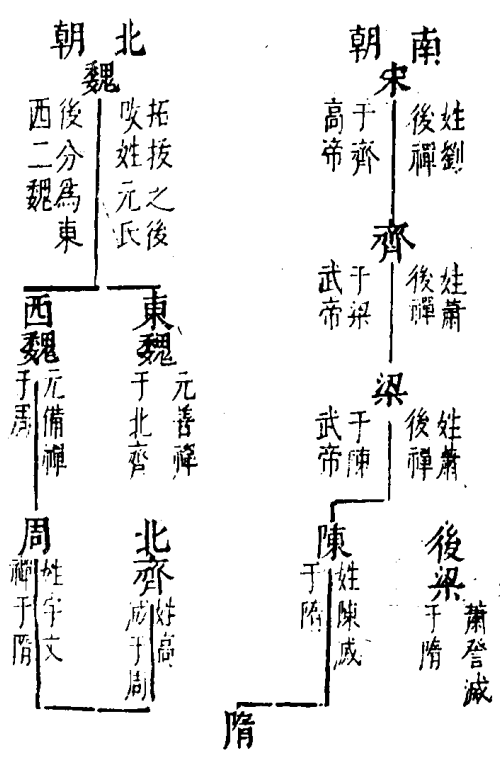 南朝
宋
姓劉
後禪
于齊
高帝
齊
姓蕭
後禪
于梁
武帝
梁
姓蕭
後禪
于陳
武帝
後梁
蕭詧滅
于隋
陳
姓陳滅
于隋
北朝
魏
拓拔之後
改姓元氏
後分爲東
西二魏
東魏
元善禪
于北齊
西魏
元備禪
于周
北齊
姓高
滅于周
周
姓宇文
禪于隋
隋